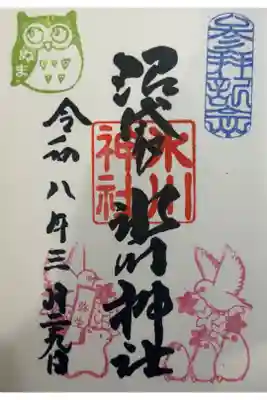 参拝記念
沼袋氷川神社
氷川
神社
令和八年三月二十九日
ぬま
弥生